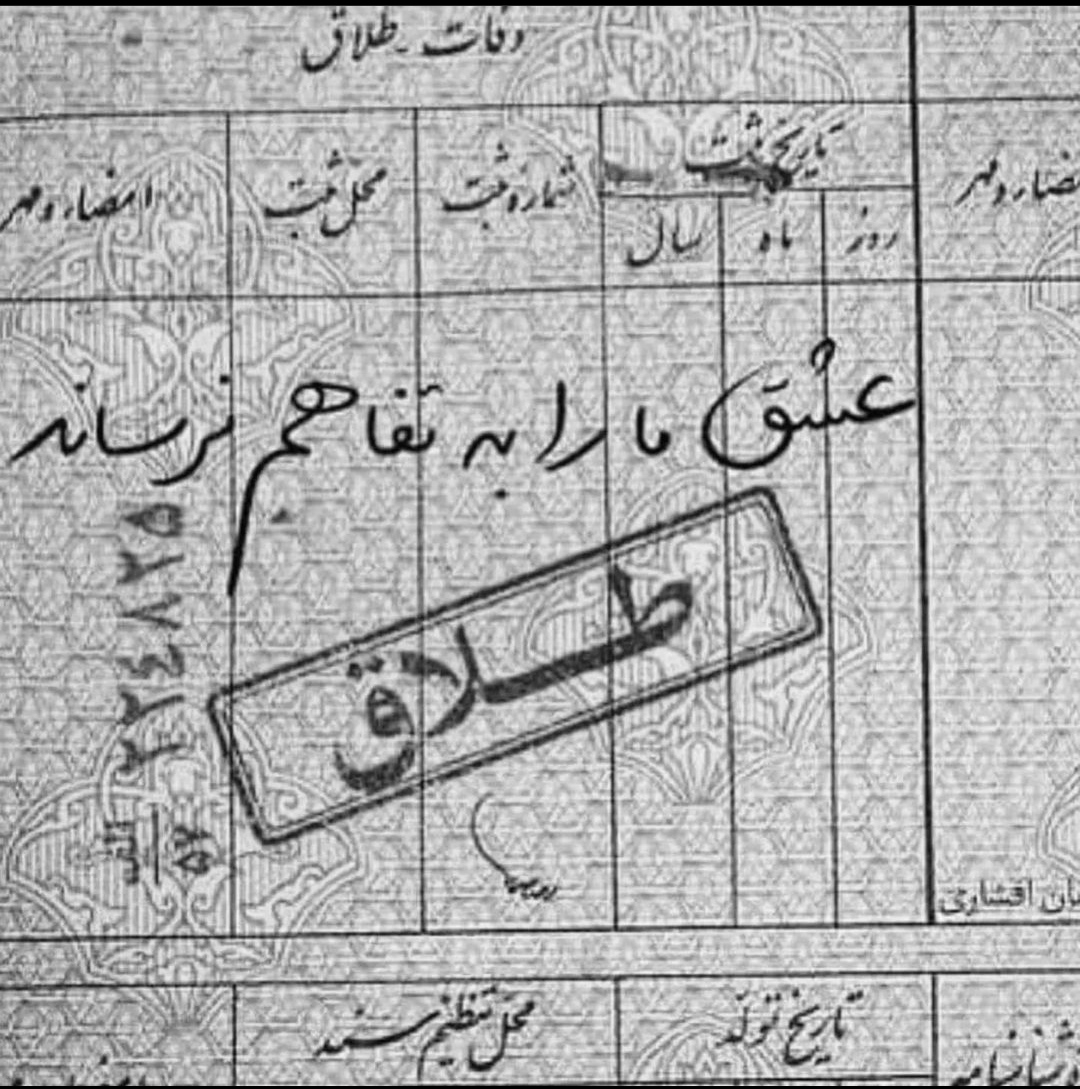 وفات - طلاق
امضاء و مهر
تاریخ ثبت
شماره ثبت
محل ثبت
امضاء و مهر
روز
ماه
سال
عشق ما را به تفاهم نرساند
طلاق
محل تنظیم سند
تاریخ تولد